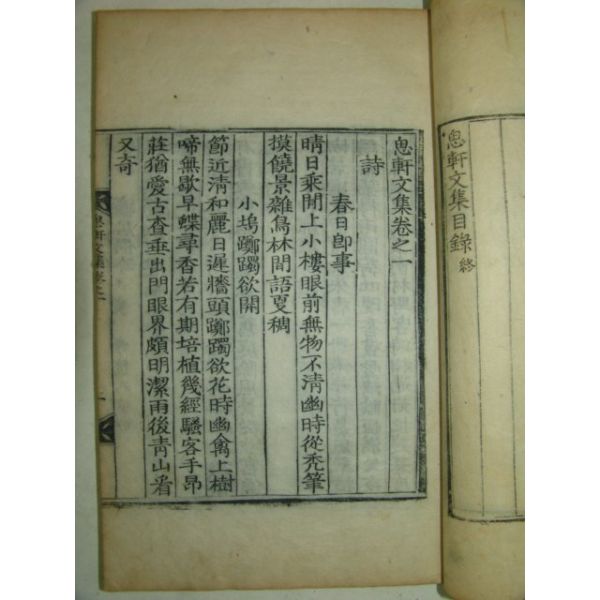 思軒文集目錄終
思軒文集卷之一
詩
春日卽事
晴日乘閒上小樓眼前無物不淸幽時從禿筆
摸饒景雜鳥林間語更稠
小塢躑躅欲開
節近清和麗日遲墻頭躑躅欲花時幽禽上樹
啼無歇早蝶尋香若有期培植幾經騷客手昂
莊猶愛古査垂出門眼界頗明潔雨後靑山看
又奇
思軒文集卷之一